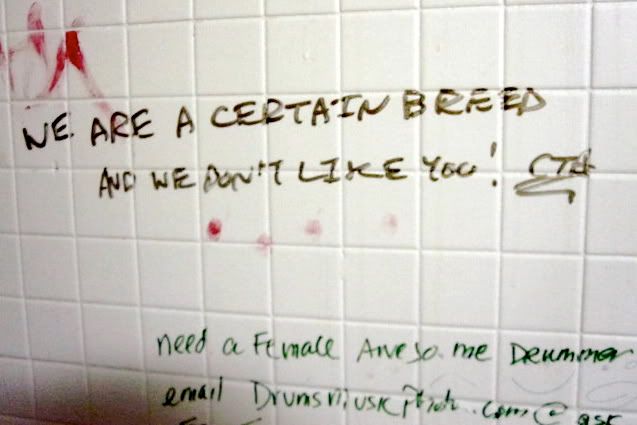 WE ARE A CERTAIN BREED
AND WE DON'T LIKE YOU!
need a Female Awesome Drummer
email